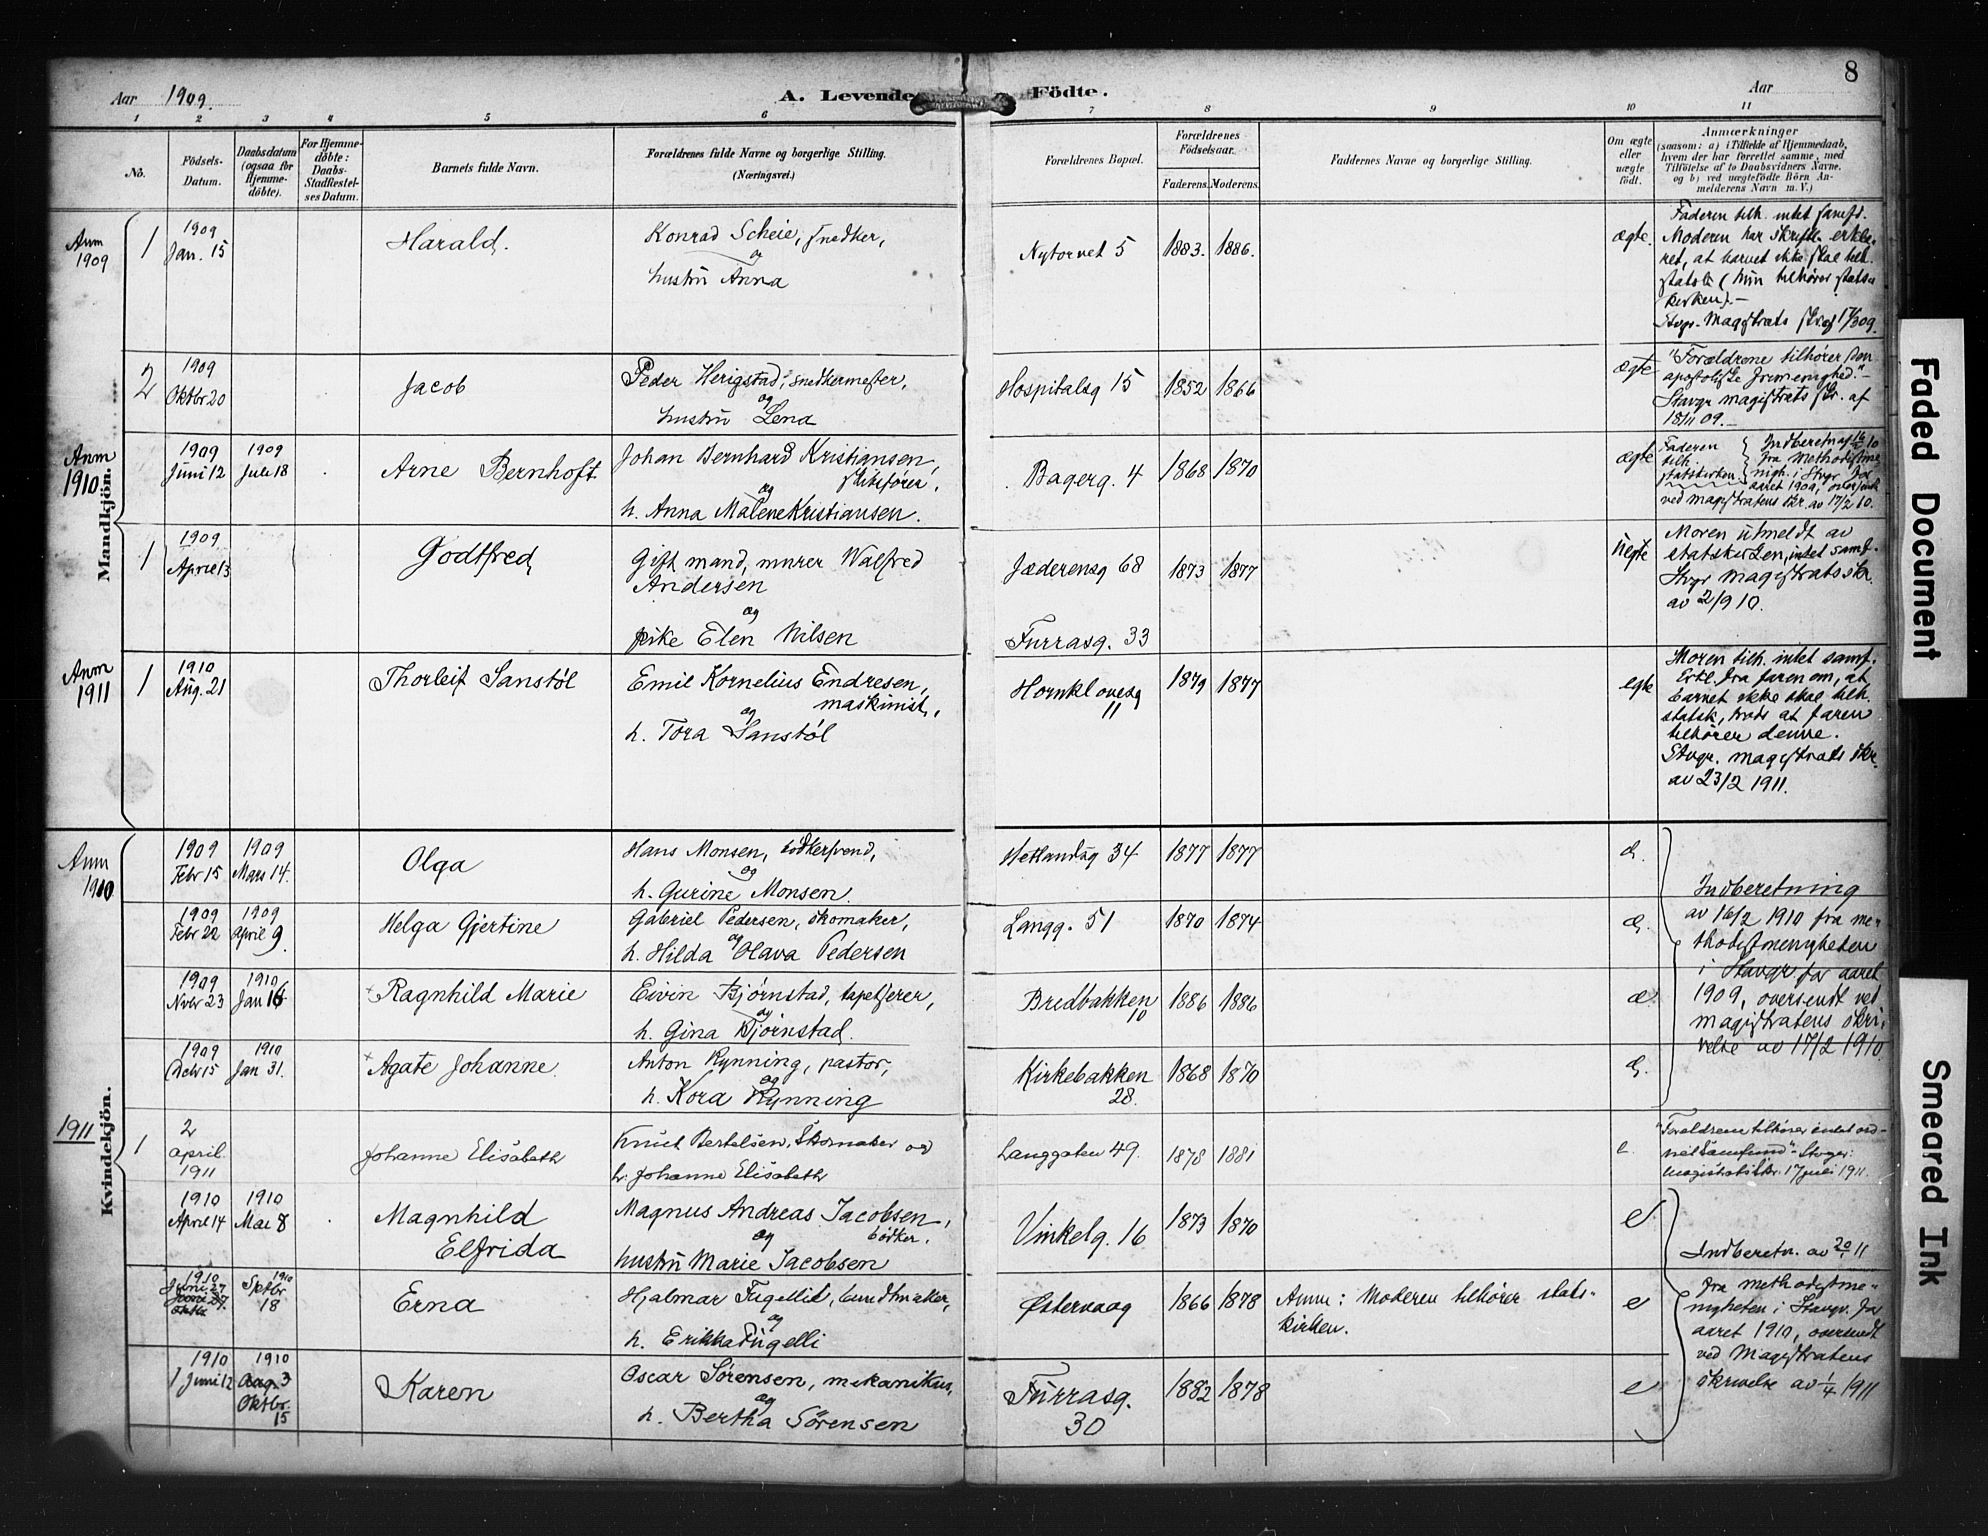 8
Aar 1909.
A. Levende Födte.
Aar
1 2 3 4 5 6 7 8 9 10 11
No.
Födsels-Datum.
Daabsdatum (ogsaa för Hjemme-döbte).
For Hjemme-döbte: Daabs-Stadfæstel-ses Datum.
Barnets fulde Navn.
Forældrenes fulde Navne og borgerlige Stilling.
(Næringsvei.)
Forældrenes Bopæl.
Forældrenes Födselsaar.
Faderens. Moderens.
Faddernes Navne og borgerlige Stilling.
Om ægte eller uægte födt.
Anmærkninger
(saasom: a) i Tilfælde af Hjemmedaab,
hvem der har forrettet samme, med
Tilföielse af to Daabsvidners Navne,
og b) ved uægtefödte Börn An-
melderens Navn m. V.)
Mandkjön.
Anm 1909
1
1909 Jan. 15
Harald.
Konrad Scheie, snedker,
og
hustrü Anna
Nytorvet 5
1883. 1886.
ægte.
Faderen tilh. intet samfd.
Moderen har skriftl. erklæ-
ret, at barnet ikke skal tilh.
statsk (hün tilhører stats-
kirken).-
Stvgr. Magistrats skr. af 17/3 09.
2
1909 Oktbr 20
Jacob
Peder Herigstad, snedkermester,
og
hustrü Lena
Hospitalsg 15
1852 1866
ægte
"Forældrene tilhører den
apostoliske frimenighed."-
Stavgr magistrats skr. af
18/11 09.-
Anm 1910
1909 Juni 12
1909 Juli 18
Arne Bernhoft
Johan Bernhard Kristiansen,
skibsfører,
og
h. Anna Malene Kristiansen.
Bagerg. 4
1868 1870
ægte
Faderen
tilh.
statskirken
Indberetn af 16/2 10
fra Methodistme-
nigh. i Stvgr for
aaret 1909, oversendt
ved magistratens skr. av 17/2 10.
1
1909 April 13
Godtfred
Gift mand, murer Walfred
Andersen
og
pike Elen Nilsen
Jæderensg 68
Furrasg. 33
1873 1877
üegte
Moren utmeldt av
statskirken, intet samf.
Stvgr magistrats skr.
av 2/9 10.
Anm 1911
1
1910 Aug. 21
Thorleif Sanstøl
Emil Kornelius Endresen,
maskinist,
og
h. Tora Sanstøl
Hornklovesg 11
1879 1877
egte
Moren tilh. intet samf.
Erkl. fra faren om, at
barnet ikke skal tilh.
statsk, trods at faren
tilhører denne.
Stvgr. magistrats skr.
av 23/2 1911.
Kvindekjön.
Anm 1910
1909 Febr 15
1909 Mars 14.
Olga
Hans Monsen, bødkersvend,
og
h. Gurine Monsen.
Hetlandsg 34
1877 1877
æ.
1909 Febr 22
1909 april 9
Helga Gjertine
Gabriel Pedersen, skomaker,
og
h. Hilda Olava Pedersen
Langg. 51
1870 1874
æ.
1909 Novbr 23
1910 Jan 16
Ragnhild Marie
Eivin Bjørnstad, tapetserer,
og
h. Gina Bjørnstad.
Bredbakken 10
1886 1886
æ
1909 Debr 15
1910 Jan 31.
Agate Johanne
Anton Rynning, pastor,
og
h. Kora Rynning
Kirkebakken 28.
1868 1870
æ.
Indberetning
av 16/2 1910 fra me-
thodistmenigheten
i Stavgr. for aaret
1909, oversendt ved
magistratens skri-
velse av 17/2 1910.
1911
1
2 april 1911
Johanne Elisabeth
Knut Bertelsen, Skomaker og
h. Johanne Elisabeth
Langgaten 49.
1878 1881
e.
"Forældrene tilhører intet ord-
net Samfund" Stvgr.
magistrats skr. 17 juli 1911.
1910 April 14
1910 Mai 8
Magnhild
Elfrida
Magnus Andreas Jacobsen,
bødker,
og
hustrü Marie Jacobsen
Vinkelg. 16
1873 1870
e
1910 Juni 27
1910 Sptbr 18
Erna
Hjalmar Fugelli, bundtmaker,
og
h. Erikka Fügelli
Østervaag
1866 1878
Anm: Moderen tilhører stats-
kirken.
e
1910 Juni 12
1910 Oktbr. 15
Karen
Oscar Sørensen, mekanikus,
og
h. Bertha Sörensen
Fürrasg. 30
1882 1878
e
Indberetn. av 20/1 11
fra methodistme-
nigheten i Stavgr. for
aaret 1910, oversendt
ved Magistratens
skrivelse av 1/4 1911
Faded Document
Smeared Ink